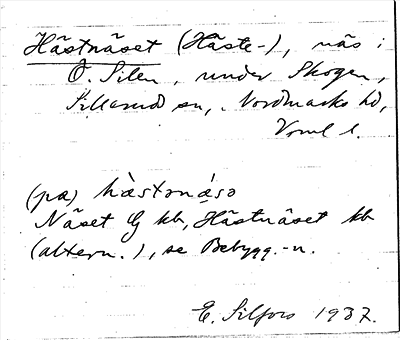 Hästnäset (Häste-), näs i
Ö. Silen, under Skogen,
Sillerud sn, Nordmarks hd,
Vrml l.
(pa) hàstənása
Näset Gg kb, Hästnäset kb
(altern.), se Bebygg.-n.
E. Silfors 1937.